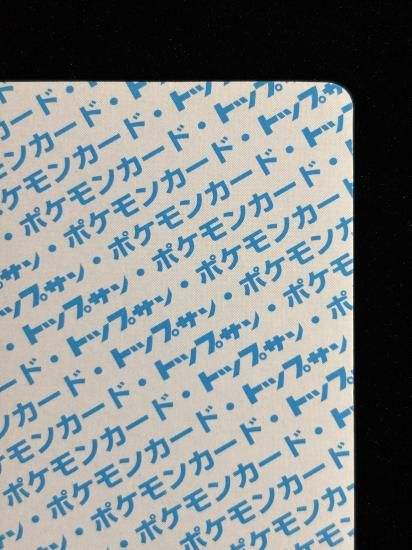 カード・
ンカード・トップ
モンカード・トップサン
ケモンカード・トップサン
・ポケモンカード・トッ
サン・ポケモンカード・
トップサン・ポケモンカード
・トップサン・ポケモンカ
ド・トップサン・ポケモ
ード・トップサン・ポ
カード・トップサン・
ンカード・トップサン
モンカード・トッ
ケモンカード・ト
ポケモンカード・
・ポケモンカード
サン・ポケモン
・ポケ